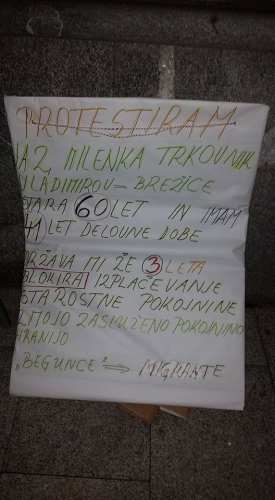 PROTESTIRAM
JAZ MLENKA TRKOVNIK
VLADIMIROV – BREŽICE
STARA 60 LET IN IMAM
41 LET DELOVNE DOBE
DRŽAVA MI ŽE 3 LETA
BLOKIRA IZPLAČEVANJE
STAROSTNE POKOJNINE
Z MOJO ZASLUŽENO POKOJNINO
HRANIJO
„BEGUNCE" ⇒ MIGRANTE